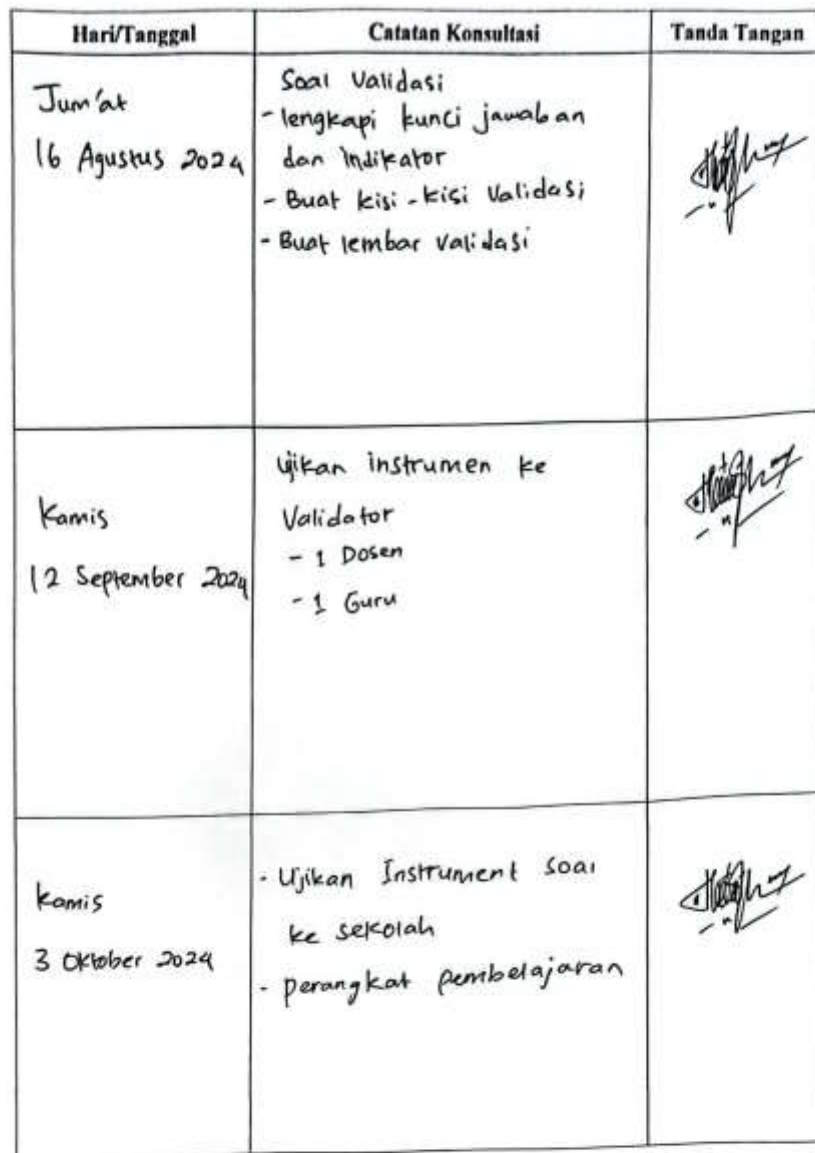 Hari/Tanggal
Catatan Konsultasi
Tanda Tangan
Jum'at
16 Agustus 2024
Soal Validasi
- lengkapi kunci jawaban
dan indikator
- Buat kisi-kisi Validasi
- Buat lembar validasi
Kamis
12 September 2024
Ujikan instrumen ke
Validator
- 1 Dosen
- 1 Guru
Kamis
3 Oktober 2024
- Ujikan Instrument soal
ke sekolah
- perangkat pembelajaran